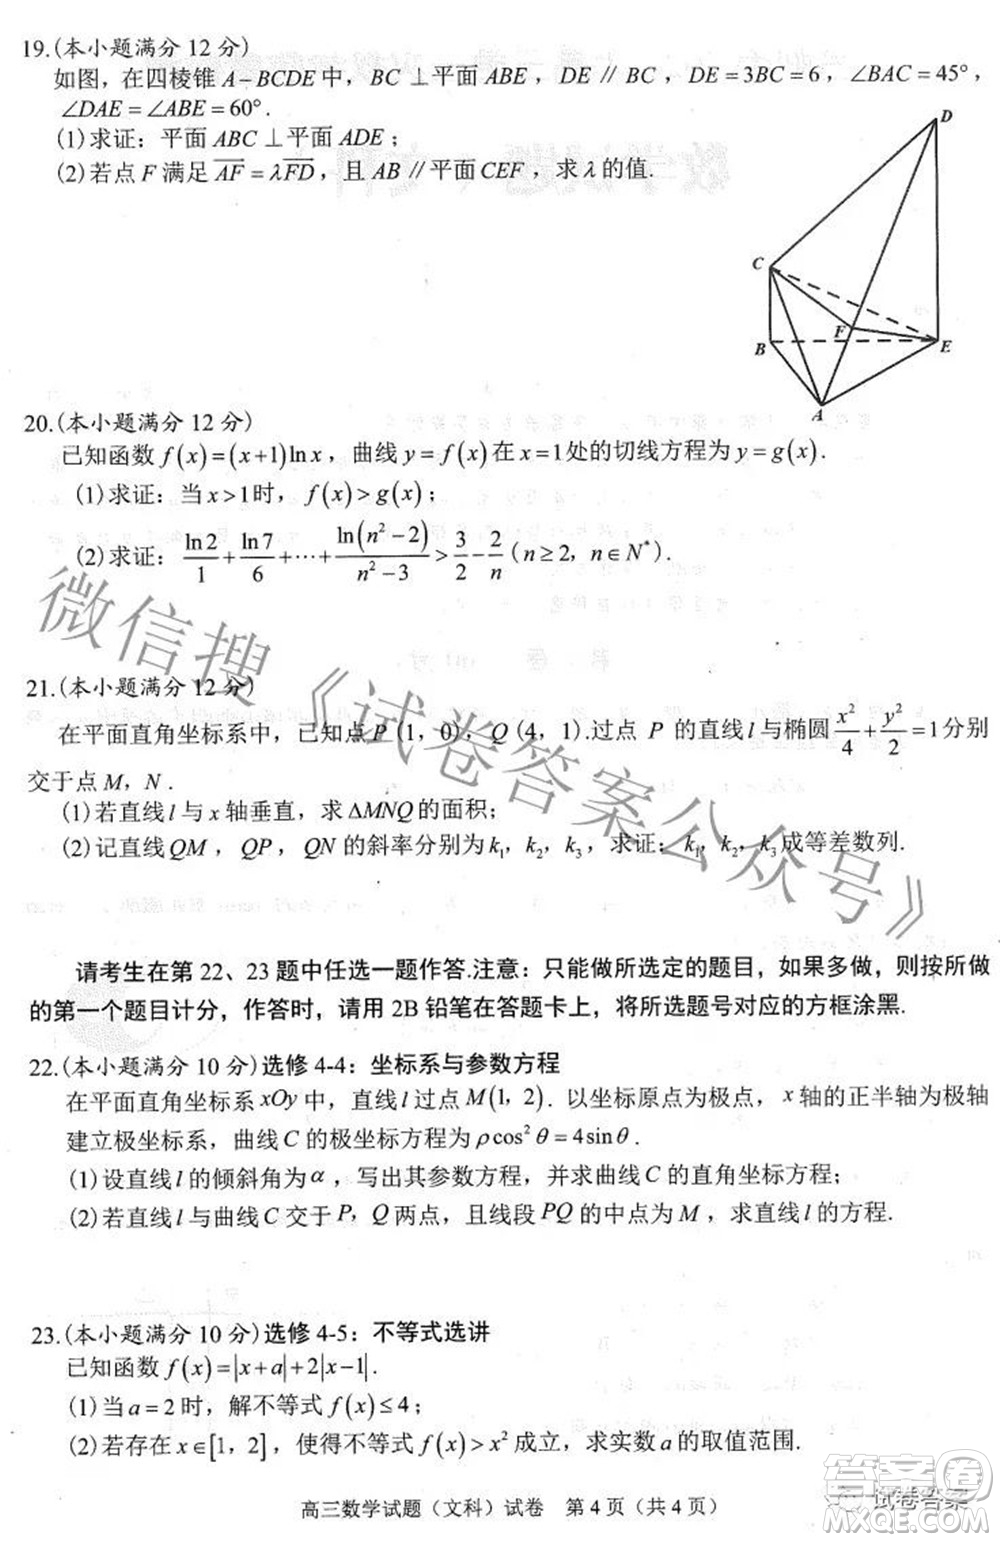 19.(本小题满分 12 分)
如图，在四棱锥 A－BCDE 中，BC ⊥平面 ABE，DE // BC，DE = 3BC = 6，∠BAC = 45°，
∠DAE = ∠ABE = 60°．
(1)求证：平面 ABC ⊥平面 ADE；
(2)若点 F 满足 AF = λFD，且 AB // 平面 CEF，求 λ 的值.
D
C
F
B
E
A
20.(本小题满分 12 分)
已知函数 f(x)=(x+1)ln x，曲线 y = f(x) 在 x = 1 处的切线方程为 y = g(x)．
(1)求证：当 x > 1 时，f(x) > g(x)；
(2)求证：ln2/1 + ln7/6 + ··· + ln(n²－2)/(n²－3) > 3/2 － 2/n (n ≥ 2，n ∈ N*)．
21.(本小题满分 12 分)
在平面直角坐标系中，已知点 P (1，0)，Q (4，1).过点 P 的直线 l 与椭圆 x²/4 + y²/2 = 1 分别
交于点 M，N．
(1)若直线 l 与 x 轴垂直，求 ΔMNQ 的面积；
(2)记直线 QM，QP，QN 的斜率分别为 k₁，k₂，k₃，求证：k₁，k₂，k₃ 成等差数列.
微信搜《试卷答案公众号》
请考生在第 22、23 题中任选一题作答.注意：只能做所选定的题目，如果多做，则按所做
的第一个题目计分，作答时，请用 2B 铅笔在答题卡上，将所选题号对应的方框涂黑.
22.(本小题满分 10 分)选修 4-4：坐标系与参数方程
在平面直角坐标系 xOy 中，直线 l 过点 M(1，2)．以坐标原点为极点，x 轴的正半轴为极轴
建立极坐标系，曲线 C 的极坐标方程为 ρcos²θ = 4sinθ．
(1)设直线 l 的倾斜角为 α，写出其参数方程，并求曲线 C 的直角坐标方程；
(2)若直线 l 与曲线 C 交于 P，Q 两点，且线段 PQ 的中点为 M，求直线 l 的方程.
23.(本小题满分 10 分)选修 4-5：不等式选讲
已知函数 f(x)=|x+a|+2|x－1|．
(1)当 a = 2 时，解不等式 f(x) ≤ 4；
(2)若存在 x ∈ [1，2]，使得不等式 f(x) > x² 成立，求实数 a 的取值范围.
高三数学试题（文科）试卷 第 4 页（共 4 页）
答案圈
试卷答案
MXQE.COM